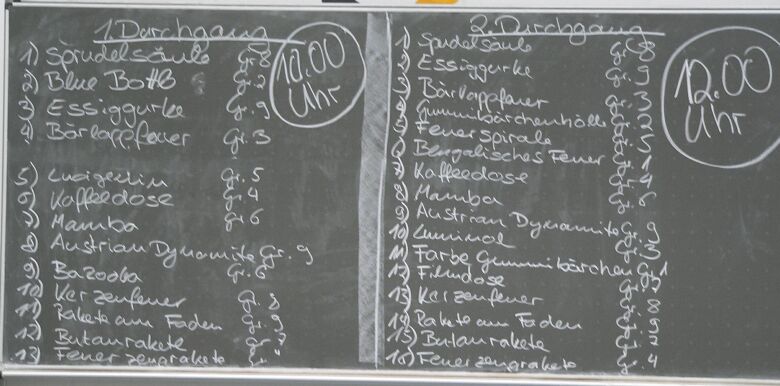 1. Durchgang
10.00 Uhr
1) Sprudelsäule Gr. 8
2) Blue Bottle Gr. 2
3) Essiggurke Gr. 9
4) Bärlappfeuer Gr. 3
5) Gr. 5
6) Kaffeedose Gr. 4
7) Mamba Gr. 6
8) Austrian Dynamite Gr. 9
9) Bazooba Gr. 6
10) Kerzenfeuer Gr. 8
11) Rakete am Faden Gr. 9
12) Butanrakete Gr.
13) Feuerzeugrakete Gr.
2. Durchgang
12.00 Uhr
1) Sprudelsäule Gr. 8
2) Essiggurke Gr. 9
3) Bärlappfeuer Gr. 3
4) Gummibärchenhölle Gr. 2
5) Feuerspirale Gr. 5
6) Bengalisches Feuer Gr. 1
7) Kaffeedose Gr. 4
8) Mamba Gr. 6
9) Austrian Dynamite Gr. 9
10) Luminol Gr. 3
11) Farbe Gummibärchen Gr. 1
12) Filmdose Gr. 7
13) Kerzenfeuer Gr. 8
14) Rakete am Faden Gr. 9
15) Butanrakete Gr. 2
16) Feuerzeugrakete Gr. 4